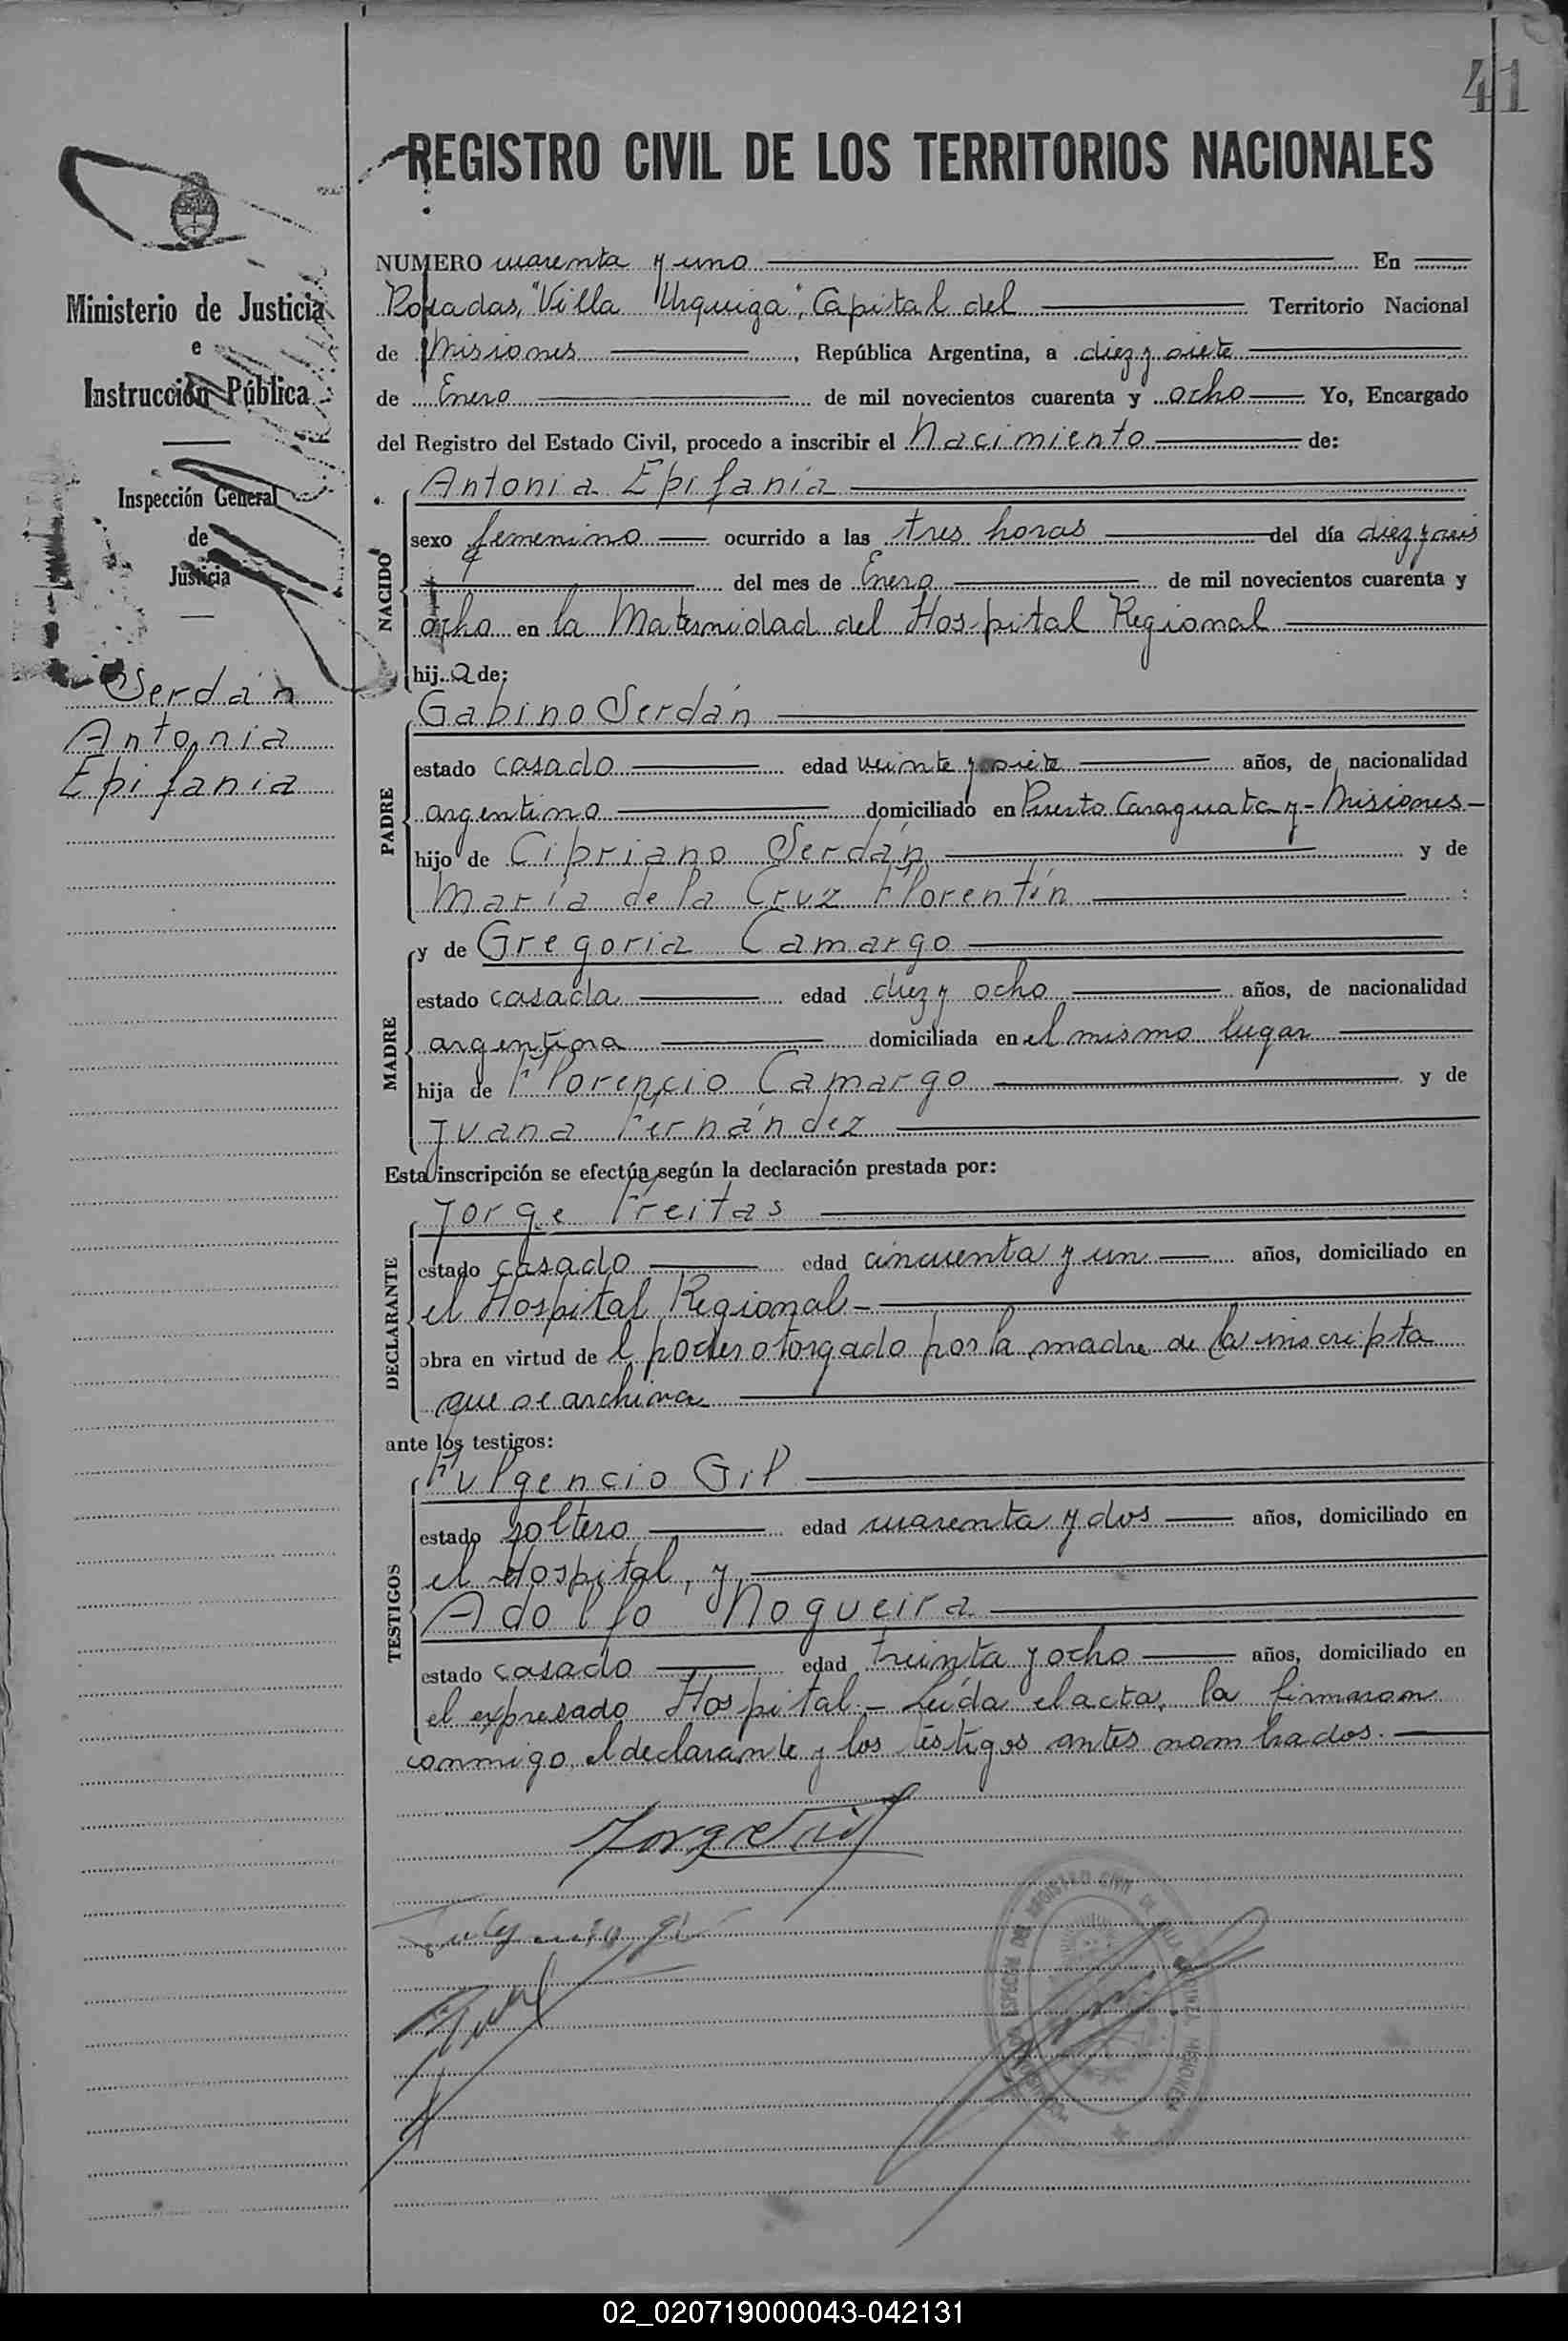 41
REGISTRO CIVIL DE LOS TERRITORIOS NACIONALES
Ministerio de Justicia
e
Instrucción Pública
Inspección General
de
Justicia
Serdán
Antonia
Epifania
NUMERO cuarenta y uno En
Posadas, "Villa Urquiza", Capital del Territorio Nacional
de Misiones, República Argentina, a diez y siete
de Enero de mil novecientos cuarenta y ocho Yo, Encargado
del Registro del Estado Civil, procedo a inscribir el Nacimiento de:
NACIDO
Antonia Epifania
sexo femenino ocurrido a las tres horas del día diez y seis
del mes de Enero de mil novecientos cuarenta y
ocho en la Maternidad del Hospital Regional
hij.a de:
PADRE
Gabino Serdán
estado casado edad veinte y siete años, de nacionalidad
argentino domiciliado en Puerto Caraguatay - Misiones -
hijo de Cipriano Serdán y de
María de la Cruz Florentín
MADRE
y de Gregoria Camargo
estado casada edad diez y ocho años, de nacionalidad
argentina domiciliada en el mismo lugar
hija de Florencio Camargo y de
Juana Fernández
Esta inscripción se efectúa según la declaración prestada por:
DECLARANTE
Jorge Freitas
estado casado edad cincuenta y un años, domiciliado en
el Hospital Regional -
obra en virtud de l poder otorgado por la madre de la inscripta
que se archiva
ante los testigos:
TESTIGOS
Fulgencio Gil
estado soltero edad cuarenta y dos años, domiciliado en
el Hospital, y
Adolfo Nogueira
estado casado edad treinta y ocho años, domiciliado en
el expresado Hospital - Leída el acta, la firmaron
conmigo, el declarante y los testigos antes nombrados.
Fulgencio Gil
02_020719000043-042131